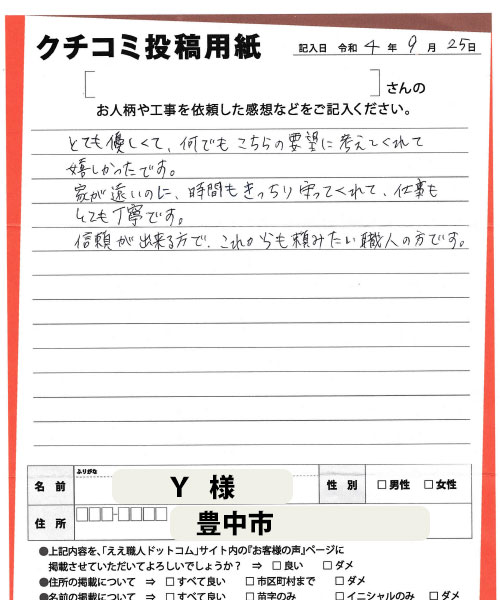 クチコミ投稿用紙
記入日 令和 4 年 9 月 25日
[ ] さんの
お人柄や工事を依頼した感想などをご記入ください。
とても優しくて、何でもこちらの要望に考えてくれて
嬉しかったです。
家が遠いのに、時間もきっちり守ってくれて、仕事も
とても丁寧です。
信頼が出来る方で、これからも頼みたい職人の方です。
ふりがな
名前 Y 様 性別 □男性 □女性
住所 豊中市
●上記内容を、「ええ職人ドットコム」サイト内の『お客様の声』ページに
掲載させていただいてよろしいでしょうか? ⇒ □良い □ダメ
●住所の掲載について ⇒ □すべて良い □市区町村まで □ダメ
●名前の掲載について ⇒ □すべて良い □苗字のみ □イニシャルのみ □ダメ